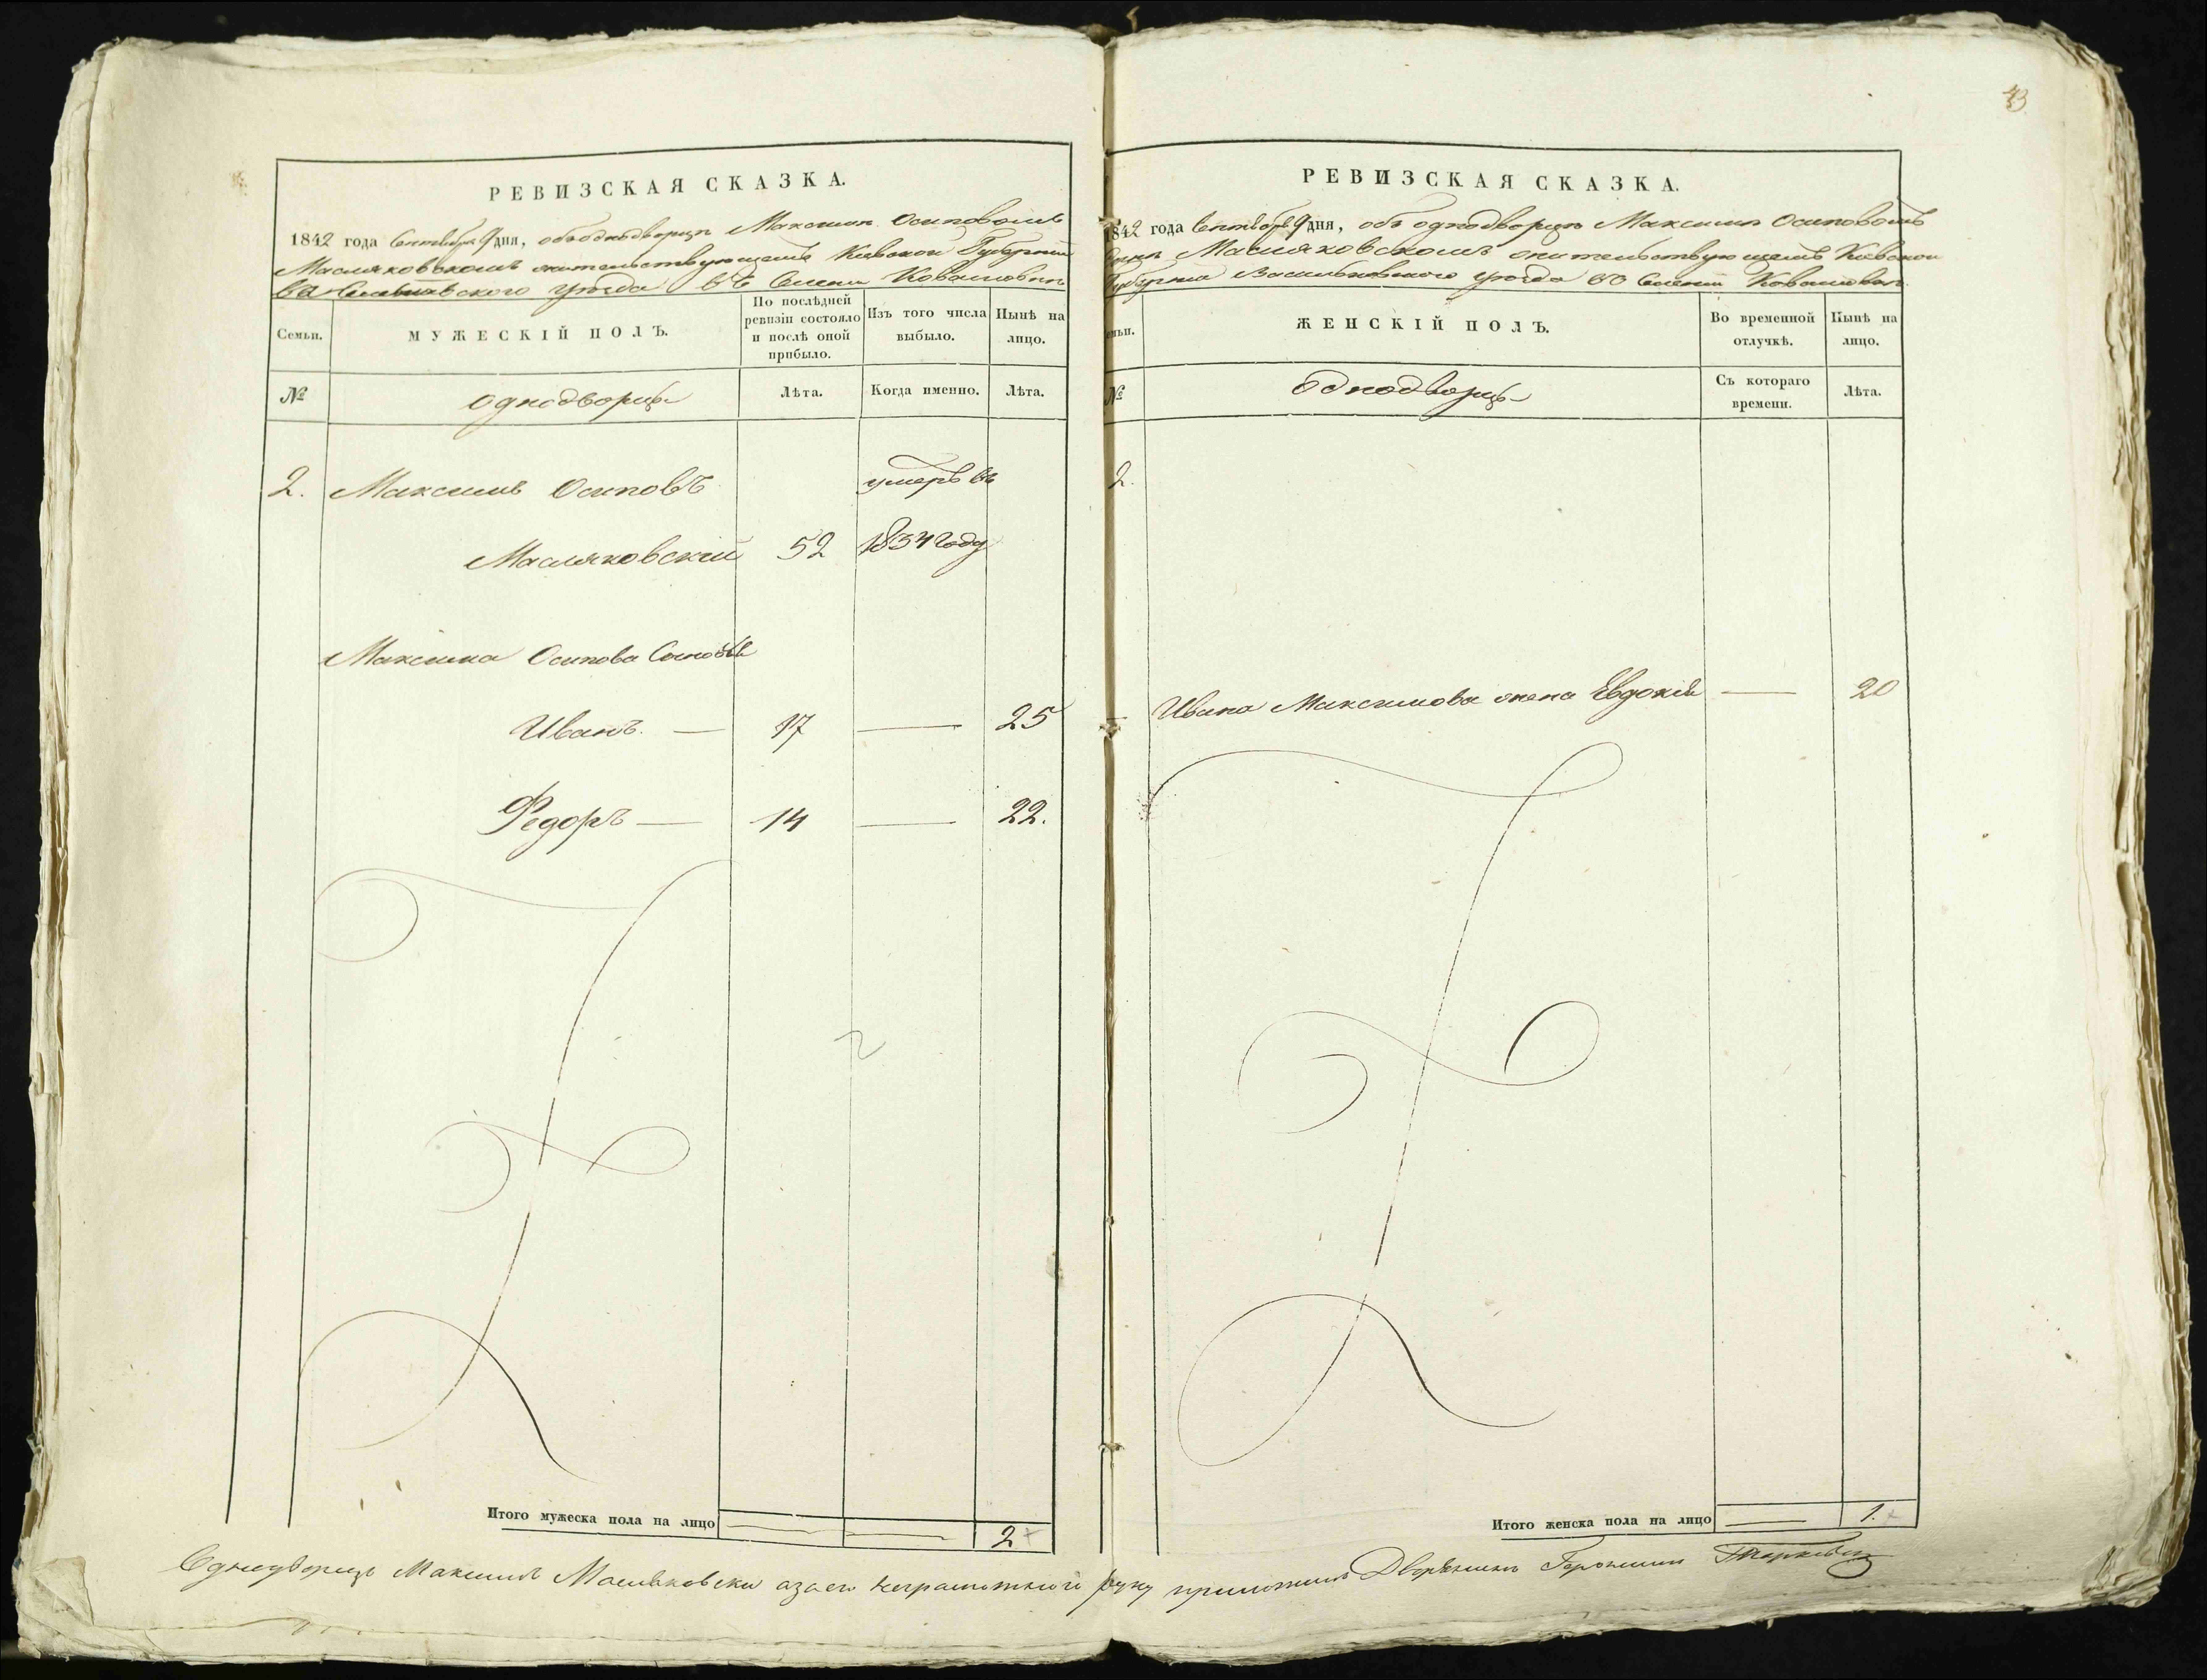 РЕВИЗСКАЯ СКАЗКА.
1842 года Сентября 9 дня, объ однодворцѣ Максимѣ Осиповомъ
Масляковскомъ жительствующемъ Кіевской Губерніи
Васильковскаго уѣзда въ Селеніи Ковалювкѣ
Семьи.
МУЖЕСКІЙ ПОЛЪ.
По послѣдней ревизіи состояло и послѣ оной прибыло.
Изъ того числа выбыло.
Нынѣ на лицо.
№
однодворцы
Лѣта.
Когда именно.
Лѣта.
2. Максимъ Осиповъ умеръ въ
Масляковскій 52 1834 году
Максима Осипова Сыновья
Иванъ. — 17 — 25
Федоръ — 14 — 22.
Итого мужеска пола на лицо 2
43
РЕВИЗСКАЯ СКАЗКА.
1842 года Сентября 9 дня, объ однодворцѣ Максимѣ Осиповомъ
сынѣ Масляковскомъ жительствующемъ Кіевской
Губерніи Васильковскаго уѣзда въ Селеніи Ковалювкѣ
Семьи.
ЖЕНСКІЙ ПОЛЪ.
Во временной отлучкѣ.
Нынѣ на лицо.
№
однодворцы
Съ котораго времени.
Лѣта.
2.
Ивана Максимова жена Евдокія — 20
Итого женска пола на лицо — 1.
Однодворецъ Максимъ Масляковски азаего неграмотного руку приложилъ Дворянинъ